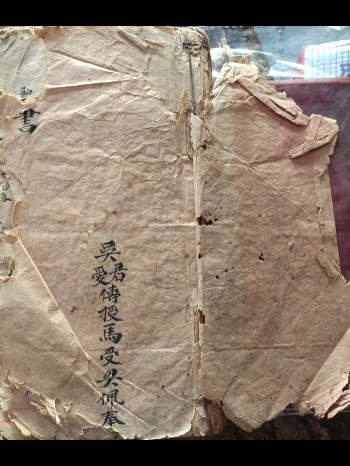 吳君愛傳授馬受吳佩奉
書